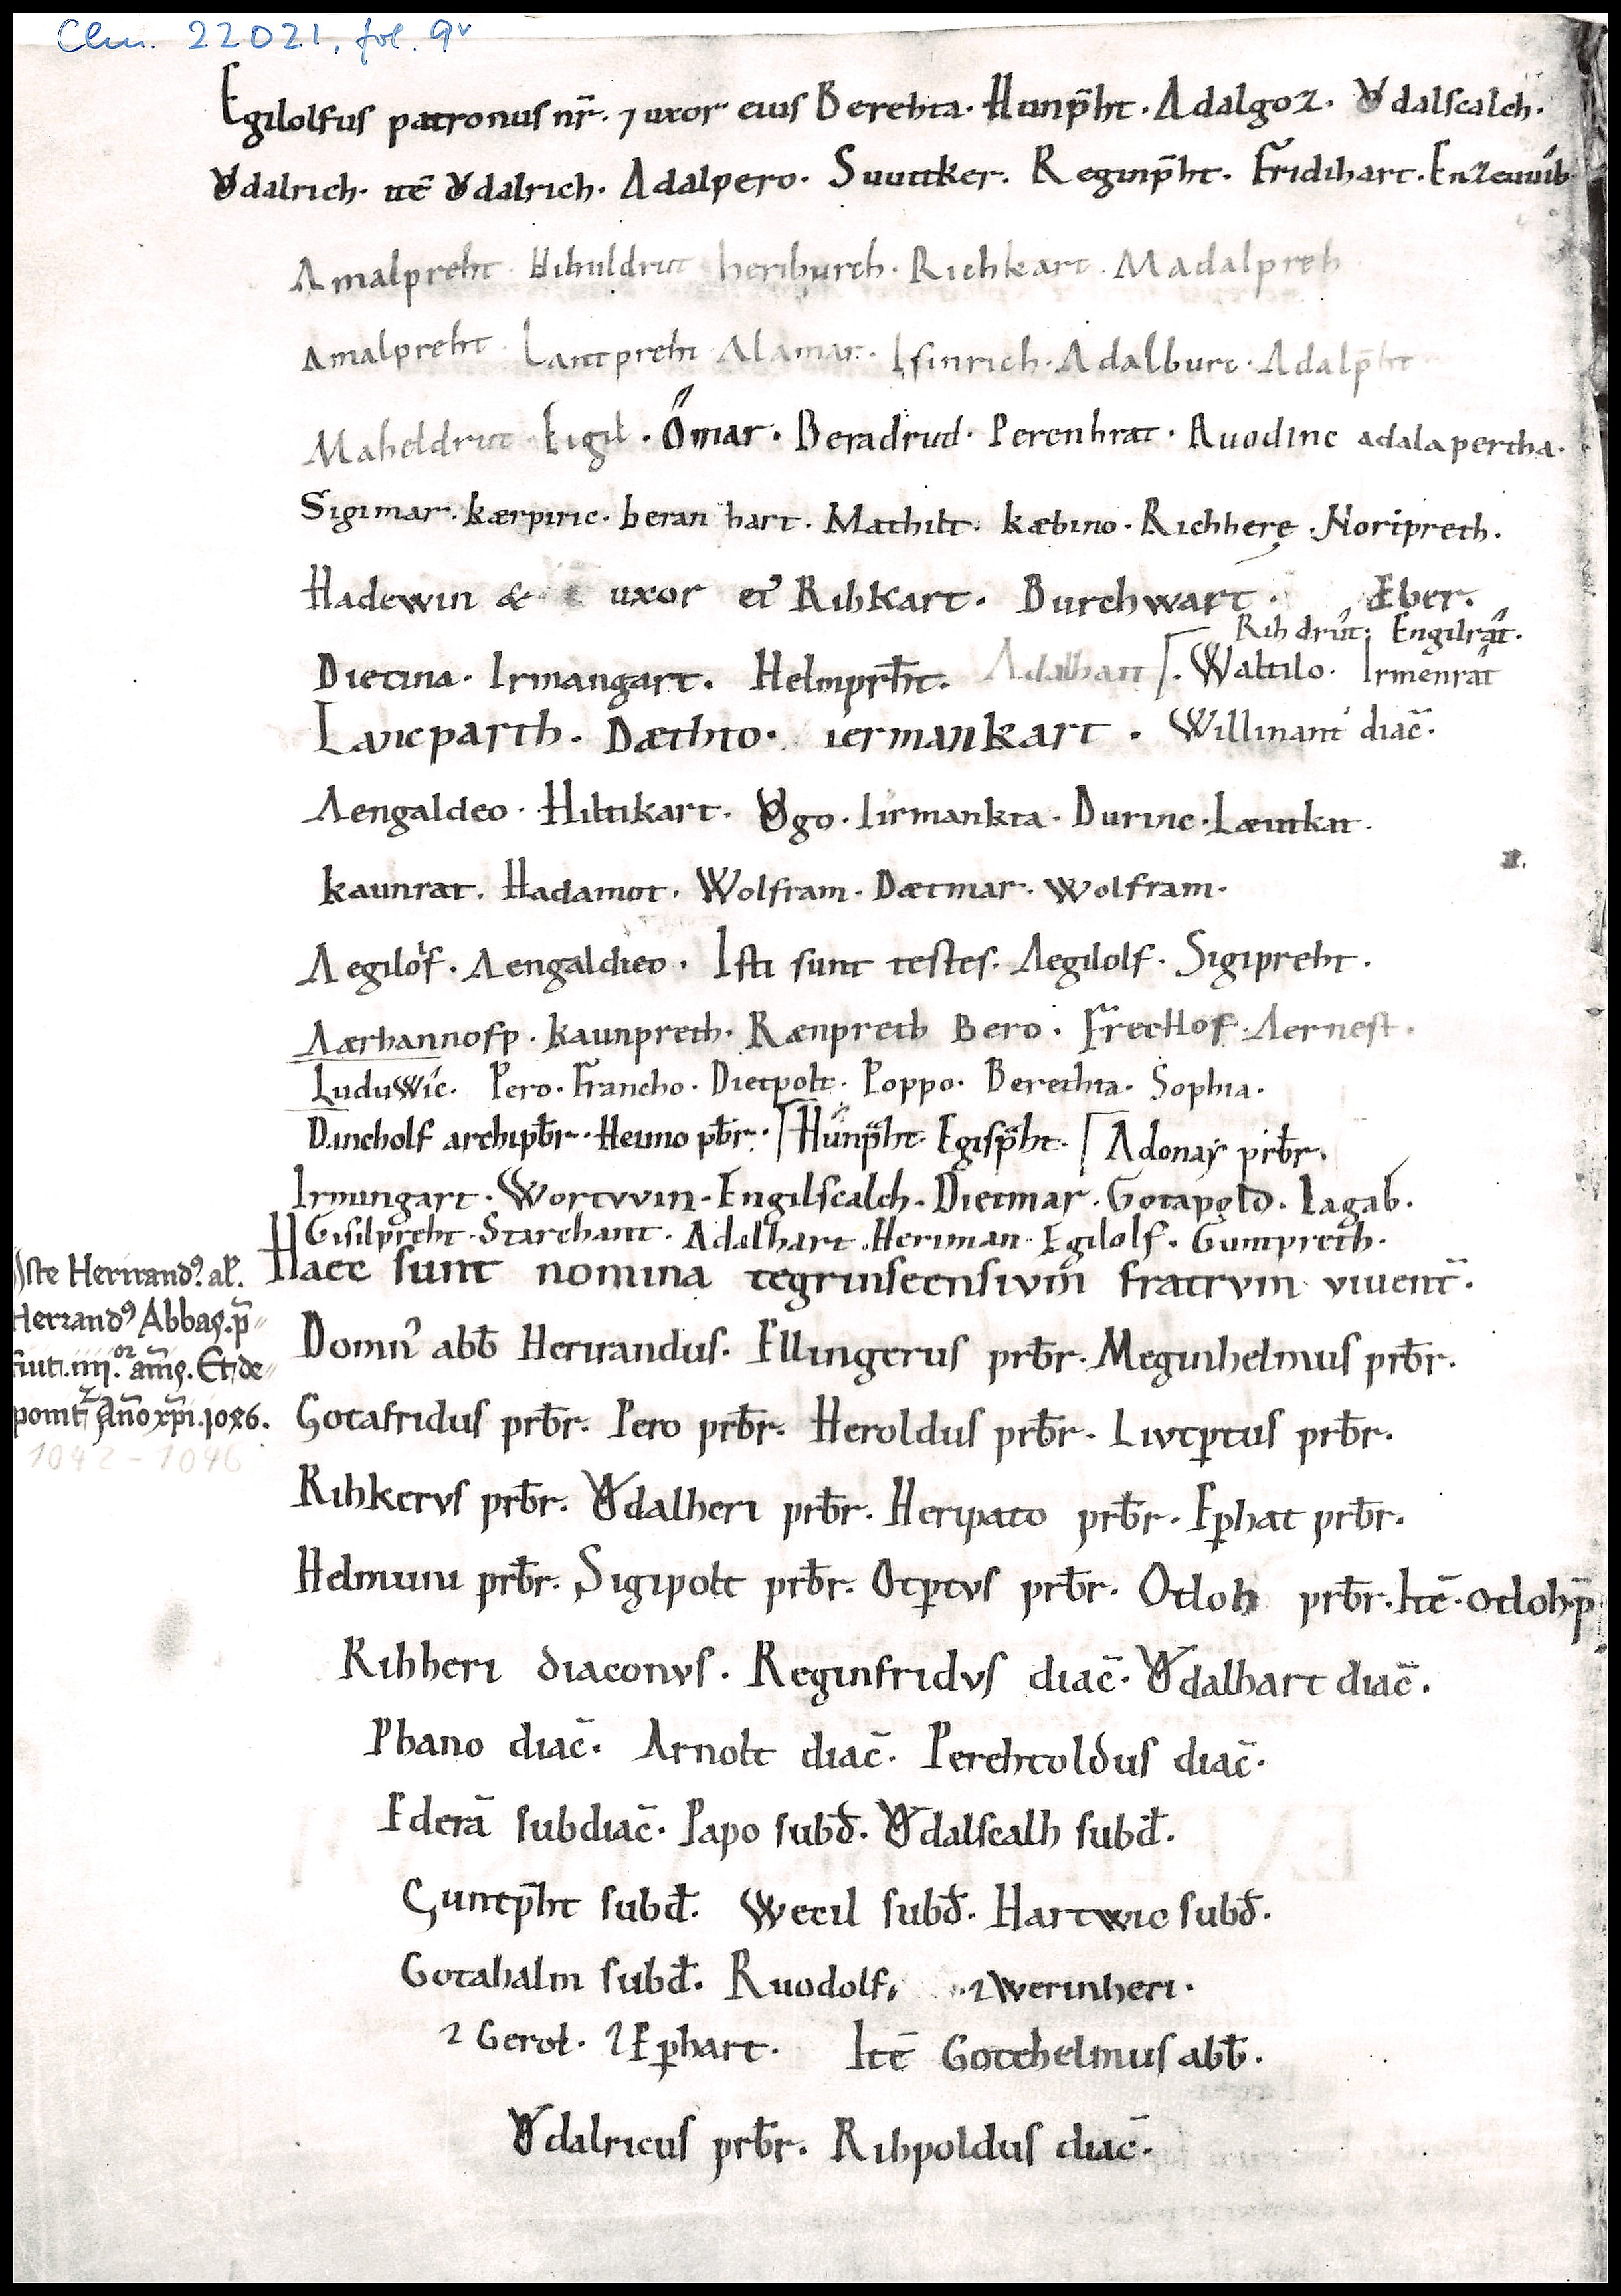 Clm. 22021, fol. 9v
Egilolfus patronus nr̄. ⁊ uxor eius Berehta. Hunp̄ht. Adalgoz. Ǒdalscalch.
Ǒdalrich. itē Ǒdalrich. Adalpero. Suuitker. Reginp̄ht. Fridihart. Enzeuuib
Amalpreht. Hihuldrut heriburch. Richkart. Madalpreh
Amalpreht. Lantpreht Alamar. Isinrich. Adalburc. Adalp̄ht
Maheldrut Eigil. Ömar. Beradrud. Perenhrat. Ruodinc adalapertha.
Sigimar. kærpiric. beran hart. Mathilt. kæbino. Richherę. Noripreth.
Hadewin & uxor ei᾿ Rihkart. Burchwart. Æber.
Rihdrût. Engilrât.
Dietina. Irmangart. Helmpr̄ht. Adalhart. Waltilo. Irmenrât
Lancparth. Dæthto. iermankart. Willinant diac̄.
Aengaldeo. Hiltikart. Ǒgo. Iirmankta. Durinc. Læutkat.
kaunrat. Hadamot. Wolfram. Dætmar. Wolfram.
Aegilolf. Aengaldieo. Isti sunt testes. Aegilolf. Sigipreht.
Aærhannosp. kaunpreth. Rænpreth Bero. Frecholf. Aernest.
Luduwic. Pero. Francho. Dietpolt. Poppo. Berechta. Sophia.
Dincholf archipb̄r. Heimo pb̄r. Hunp̄ht. Egisp̄ht. Adonaẏ prb̄r.
Irmingart. Wortvvin. Engilscalch. Dietmar. Gotapold. Iagab.
Gisilpreht. Starchant. Adalhart. Heriman. Egilolf. Gumpreth.
Haec sunt nomina tegrinseensivm̄ fratrvm viuent̄.
Iste Herirandꝰ. al'.
Herrandꝰ Abbas. p̄
fuit. iiii.or am̄s. Et de
ponit᷑ Ān̄o xp̄i. 1086.
1042 - 1046
Domn᾿ abb̄ Herirandus. Ellingerus prb̄r. Meginhelmus prb̄r.
Gotafridus prb̄r. Pero prb̄r. Heroldus prb̄r. Livtꝑtus prb̄r.
Rihkervs prb̄r. Ǒdalheri prb̄r. Heripato prb̄r. Eꝑhat prb̄r.
Helmuni prb̄r. Sigipolt prb̄r. Otꝑtvs prb̄r. Otloh prb̄r. Itē. Otloh. p̄
Rihheri diaconvs. Reginfridvs diac̄. Ǒdalhart diac̄.
Phano diac̄. Arnolt diac̄. Perchtoldus diac̄.
Ederā subdiac̄. Papo subd̄. Ǒdalscalh subd̄.
Guntp̄ht subd̄. Wecil subd̄. Hartwic subd̄.
Gotahalm subd̄. Ruodolf. ⁊ Werinheri.
⁊ Gerol. ⁊ Eꝑhart. Itē Gotehelmus abb̄.
Ǒdalricus prb̄r. Rihpoldus diac̄.